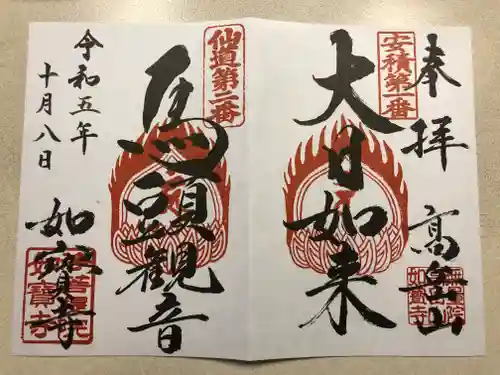 奉拝
安積第一番
大日如来
仙道第二番
馬頭觀音
令和五年
十月八日
如寳寺
如寶寺